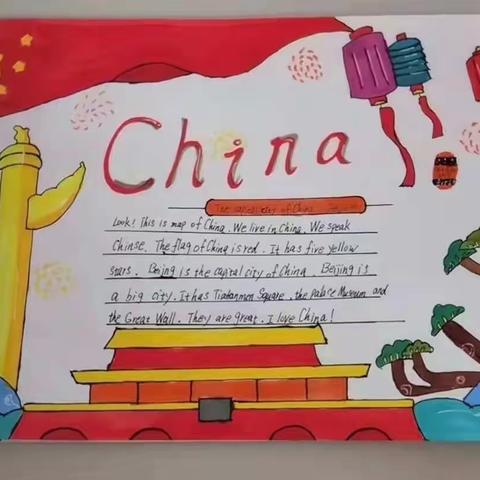 China
The capital city of China
Look! This is map of China. We live in China. We speak
Chinse. The flag of China is red. It has five yellow
stars. Bejng is the capital city of China. Beijing is
a big city. It has Tiantanmen Square. the palace Museum and
the Great Wall. They are great. I love China!